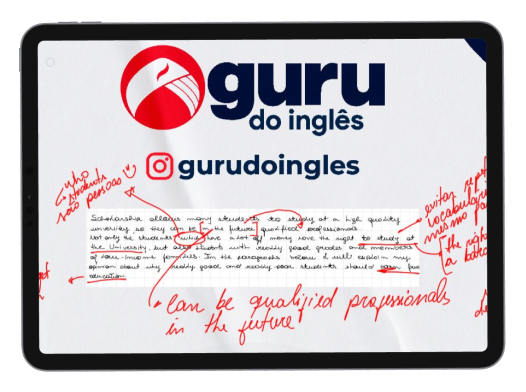 guru
do inglês
gurudoingles
who
students
são pessoas
Scholarship allows many students to study at a high quality
university so they can be in the future, qualified professionals.
Not only the students who have a lot of money have the right to study at
the University, but also students with really good grades and members
of low-income families. In the paragraphs below I will explain my
opinion about why really good and really poor students should
education.
evitar
vocabulário
mesmo
the right
• can be qualified professionals
in the future